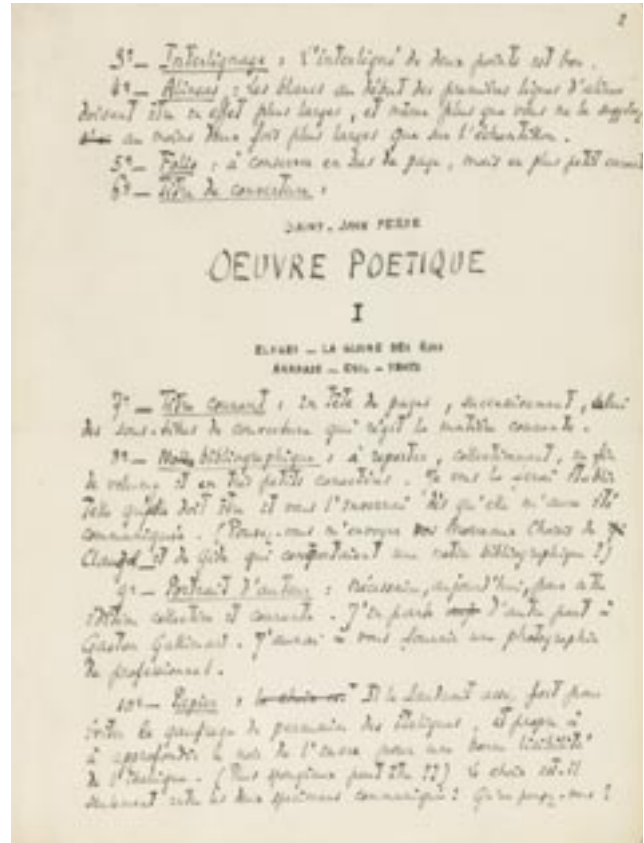 2
3º — Interlignage : L'interligne de deux points est bon.
4º — Alinéas : Les blancs au début des premières lignes d'alinéa
doivent être en effet plus larges, et même plus que vous ne le
au moins deux fois plus larges que sur l'échantillon.
5º — Folio : à conserver en bas de page, mais en plus petit
6º — Titre de couverture :
SAINT-JOHN PERSE
OEUVRE POETIQUE
I
ELOGES — LA GLOIRE DES ROIS
ANABASE — EXIL — VENTS
7º — Titre courant : en tête de pages, successivement, celui
des sous-titres de couverture qui régit la matière courante.
8º — Note bibliographique : à reporter, collectivement, en fin
de volume et en très petits caractères. Je vous la ferai établir
telle qu'elle doit être et vous l'enverrai dès qu'elle m'aura été
communiquée. (Pouvez-vous m'envoyer vos Morceaux Choisis de
Claudel et de Gide qui comportaient une notice bibliographique ?)
9º — Portrait d'auteur : nécessaire, aujourd'hui, pour cette
édition collective et courante. J'en parle d'autre part à
Gaston Gallimard. J'aurai à vous fournir une photographie
de professionnel.
10º — Papier : le choix est Il le faudrait assez fort pour
éviter le gaufrage de parchemin des italiques, et propre à
à approfondir le noir de l'encre pour une bonne lisibilité
de l'italique. (Plus spongieux peut-être ??) Le choix est-il
seulement entre les deux spécimens communiqués ? Qu'en pensez-vous ?